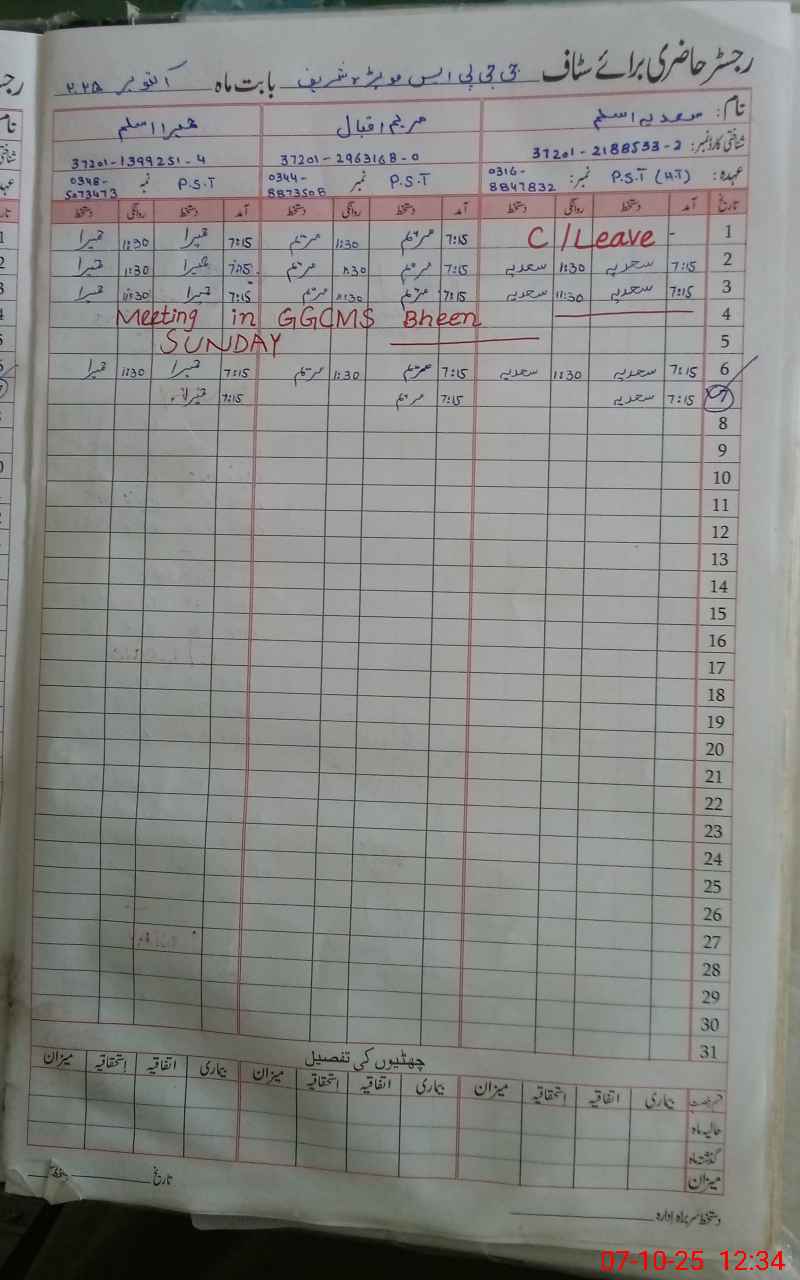 رجسٹر حاضری برائے سٹاف جی جی پی ایس موہڑہ شریف بابت ماہ اکتوبر ۲۰۲۵
نام: سعدیہ اسلم مریم اقبال حمیرا اسلم
شناختی کارڈ نمبر: 37201-2188533-2 37201-2963168-0 37201-1399251-4
عہدہ: P.S.T (H.T) نمبر: 0316-8847832 P.S.T نمبر 0344-8873508 P.S.T نمبر 0348-5073473
تاریخ آمد دستخط روانگی دستخط آمد دستخط روانگی دستخط آمد دستخط روانگی دستخط
1 - C/Leave 7:15 مریم 11:30 مریم 7:15 حمیرا 11:30 حمیرا
2 7:15 سعدیہ 11:30 سعدیہ 7:15 مریم 11:30 مریم 7:15 حمیرا 11:30 حمیرا
3 7:15 سعدیہ 11:30 سعدیہ 7:15 مریم 11:30 مریم 7:15 حمیرا 11:30 حمیرا
4 Meeting in GGCMS Bheen
5 SUNDAY
6 7:15 سعدیہ 11:30 سعدیہ 7:15 مریم 11:30 مریم 7:15 حمیرا 11:30 حمیرا
7 7:15 سعدیہ 7:15 مریم 7:15 حمیرا
8
9
10
11
12
13
14
15
16
17
18
19
20
21
22
23
24
25
26
27
28
29
30
31
چھٹیوں کی تفصیل
بیماری اتفاقیہ استحقاقیہ میزان بیماری اتفاقیہ استحقاقیہ میزان بیماری اتفاقیہ استحقاقیہ میزان
حالیہ ماہ
گذشتہ ماہ
میزان
تاریخ
دستخط سربراہ ادارہ
07-10-25 12:34